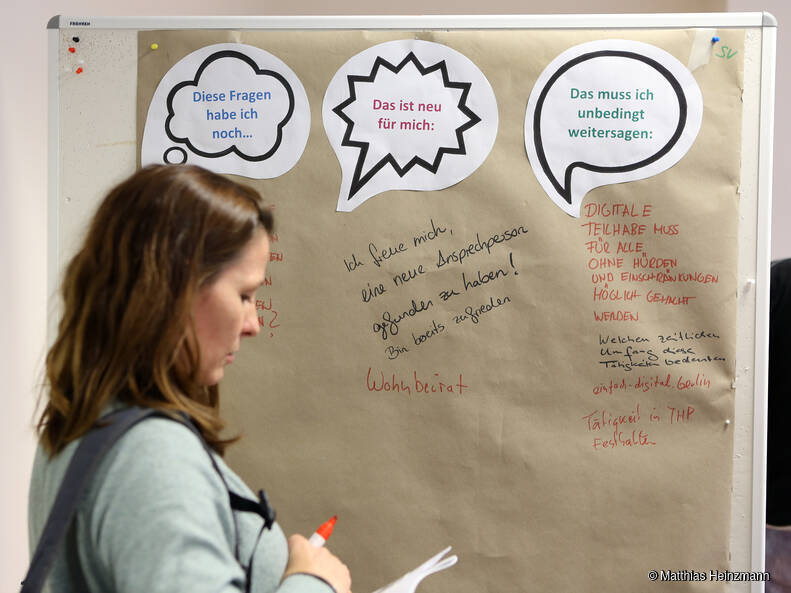 FRANKEN
Diese Fragen
habe ich
noch...
Das ist neu
für mich:
Das muss ich
unbedingt
weitersagen:
SV
EN
N
EN
?
Ich freue mich,
eine neue Ansprechperson
gefunden zu haben!
Bin bereits zufrieden
Wohnbeirat
DIGITALE
TEILHABE MUSS
FÜR ALLE
OHNE HÜRDEN
UND EINSCHRÄNKUNGEN
MÖGLICH GEMACHT
WERDEN
Welchen zeitlichen
Umfang diese
Tätigkeiten bedeuten
einfach-digital.berlin
Tätigkeit in THP
Festhalten
© Matthias Heinzmann